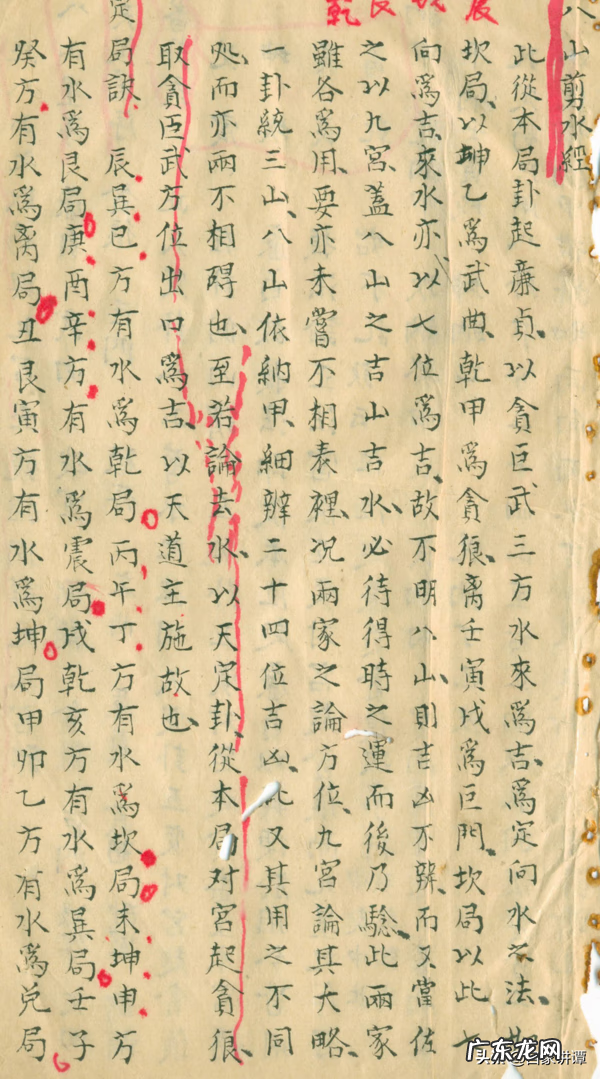 艮
乾
八山剪水經
此從本局卦起廉貞、以貪巨武三方水來爲吉、爲定向水之法、
坎局、以坤乙爲武曲、乾甲爲貪狼、离壬寅戌爲巨門、坎局以此七
向爲吉、來水亦以七位爲吉、故不明八山、則吉凶不辨、而又當佐
之以九宮、蓋八山之吉山吉水、必待得時之運而後乃驗、此兩家
雖各爲用、要亦未嘗不相表裡、况兩家之論方位、九宮論其大略、
一卦統三山、八山依納甲、細辨二十四位吉凶、此又其用之不同
処、而亦兩不相碍也、至若論去水、以天定卦、從本局对宮起貪狼、
取貪巨武方位出口爲吉、以天道主施故也、
定局訣、 辰巽巳方有水爲乾局丙午丁方有水爲坎局未坤申方
有水爲艮局庚酉辛方有水爲震局戌乾亥方有水爲巽局壬子
癸方有水爲离局丑艮寅方有水爲坤局甲卯乙方有水爲兌局
广东龙网
头条@百家讲谭